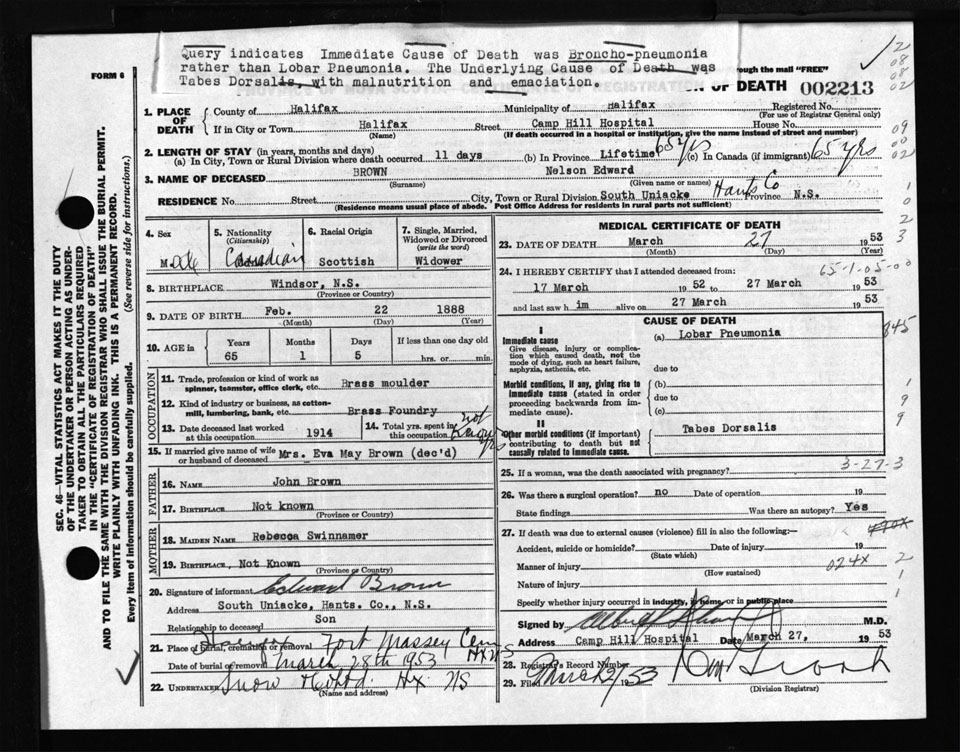 Query indicates Immediate Cause of Death was Broncho-pneumonia
rather than Lobar Pneumonia. The Underlying Cause of Death was
Tabes Dorsalis, with malnutrition and emaciation.
rough the mail "FREE"
FORM 6
OF DEATH 002213
2
08
08
02
1. PLACE OF DEATH
County of Halifax Municipality of Halifax Registered No.
(For use of Registrar General only)
If in City or Town Halifax Street Camp Hill Hospital House No.
(Name) (If death occurred in a hospital or institution, give the name instead of street and number)
09
00
02
2. LENGTH OF STAY (in years, months and days)
(a) In City, Town or Rural Division where death occurred 11 days (b) In Province Lifetime 65 yrs (c) In Canada (if immigrant) 65 yrs
3. NAME OF DECEASED BROWN Nelson Edward
(Surname) (Given name or names)
RESIDENCE No. Street City, Town or Rural Division South Uniacke Hants Co Province N.S.
(Residence means usual place of abode. Post Office Address for residents in rural parts not sufficient)
1
0
2
3
4. Sex
Male
5. Nationality
(Citizenship)
Canadian
6. Racial Origin
Scottish
7. Single, Married,
Widowed or Divorced
(write the word)
Widower
8. BIRTHPLACE Windsor, N.S.
(Province or Country)
9. DATE OF BIRTH Feb. 22 1888
(Month) (Day) (Year)
10. AGE in Years Months Days If less than one day old
65 1 5 hrs. or min.
OCCUPATION
11. Trade, profession or kind of work as
spinner, teamster, office clerk, etc. Brass moulder
12. Kind of industry or business, as cotton-
mill, lumbering, bank, etc. Brass Foundry
13. Date deceased last worked
at this occupation 1914
14. Total yrs. spent in
this occupation not known yrs
15. If married give name of wife
or husband of deceased Mrs. Eva May Brown (dec'd)
FATHER
16. NAME John Brown
17. BIRTHPLACE Not known
(Province or Country)
MOTHER
18. MAIDEN NAME Rebecca Swinnamer
19. BIRTHPLACE, Not Known
(Province or Country)
20. Signature of informant Edward Brown
Address South Uniacke, Hants. Co., N.S.
Relationship to deceased Son
21. Place of burial, cremation or removal Fort Massey Cem
Hx NS
Date of burial or removal March 28th 1953
22. UNDERTAKER Snow & Co Ltd. Hx NS
(Name and address)
MEDICAL CERTIFICATE OF DEATH
23. DATE OF DEATH March 27 1953
(Month) (Day)
24. I HEREBY CERTIFY that I attended deceased from: 65-1-05-00
17 March 1952 to 27 March 1953
and last saw him alive on 27 March 1953
CAUSE OF DEATH
I
Immediate cause
Give disease, injury or complica-
tion which caused death, not the
mode of dying, such as heart failure,
asphyxia, asthenia, etc.
(a) Lobar Pneumonia
845
due to
Morbid conditions, if any, giving rise to
immediate cause (stated in order
proceeding backwards from im-
mediate cause).
(b)
due to
(c)
9
9
II
Other morbid conditions (if important)
contributing to death but not
causally related to immediate cause.
Tabes Dorsalis
3-27-3
25. If a woman, was the death associated with pregnancy?
26. Was there a surgical operation? no Date of operation 19
State findings Was there an autopsy? Yes
27. If death was due to external causes (violence) fill in also the following:
Accident, suicide or homicide? Date of injury 19
(State which)
Manner of injury 024x
(How sustained)
Nature of injury
2
1
1
Specify whether injury occurred in industry, in home, or in public place
Signed by M.D.
Address Camp Hill Hospital Date March 27, 1953
28. Registrar's Record Number
29. Filed March 1953
(Division Registrar)
SEC. 46—VITAL STATISTICS ACT MAKES IT THE DUTY
OF THE UNDERTAKER OR PERSON ACTING AS UNDER-
TAKER TO OBTAIN ALL THE PARTICULARS REQUIRED
IN THE "CERTIFICATE OF REGISTRATION OF DEATH"
AND TO FILE THE SAME WITH THE DIVISION REGISTRAR WHO SHALL ISSUE THE BURIAL PERMIT.
WRITE PLAINLY WITH UNFADING INK. THIS IS A PERMANENT RECORD.
Every item of information should be carefully supplied. (See reverse side for instructions.)